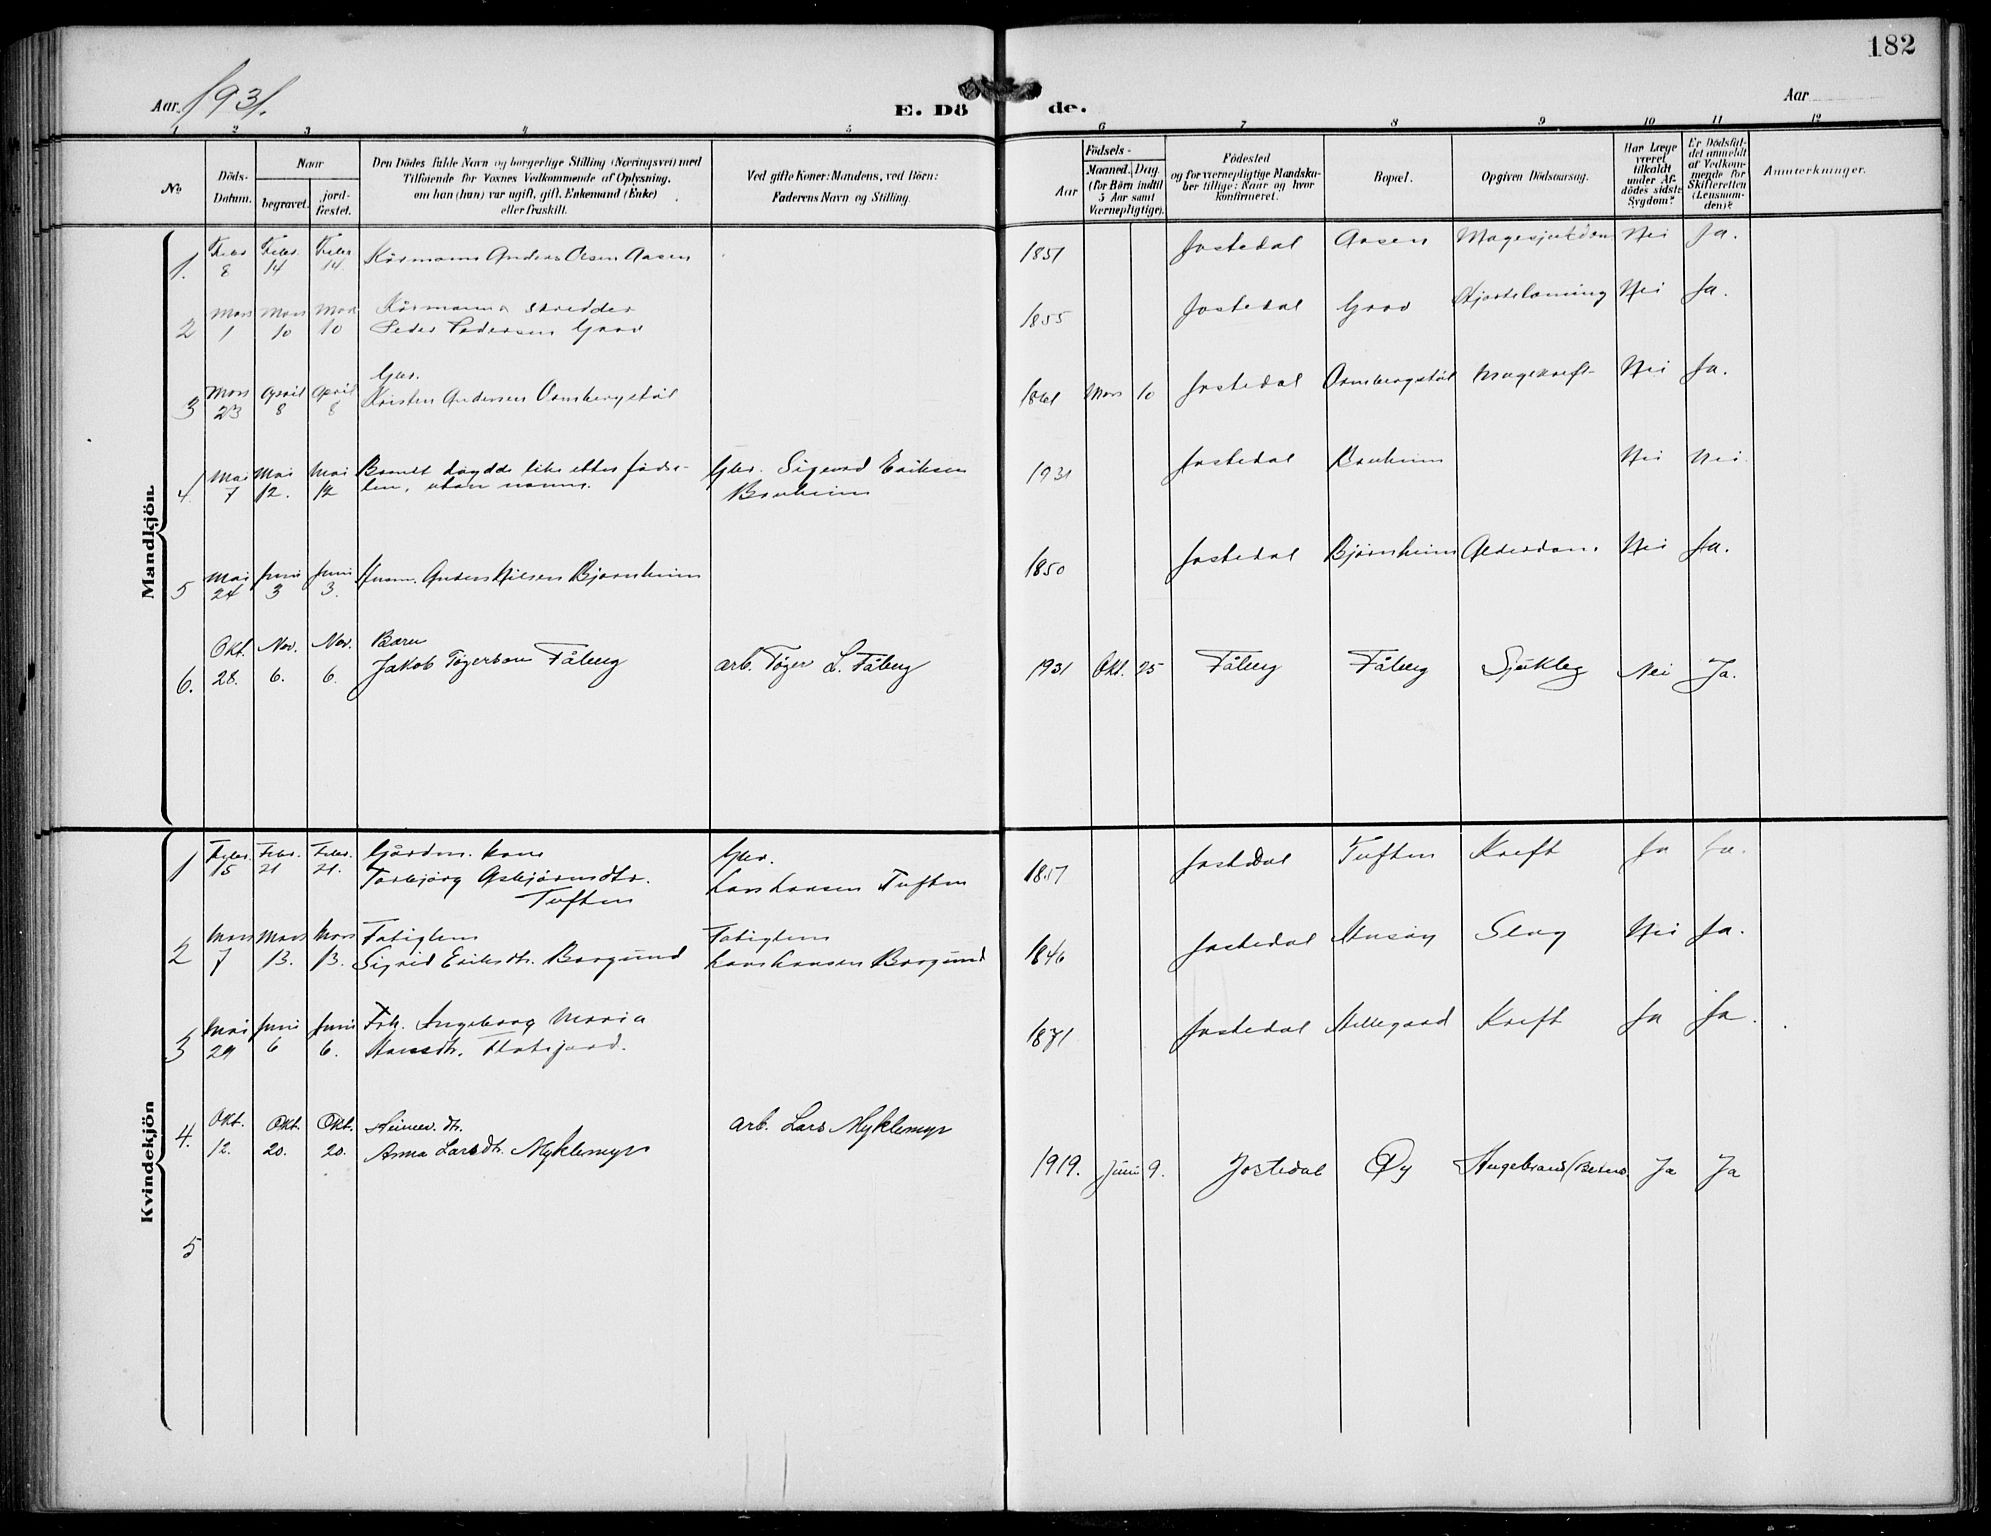 182
Aar 1931.
E. Dö de.
Aar
1 2 3 4 5 6 7 8 9 10 11 12
No
Döds-Datum.
Naar
begravet.
jord-fæstet.
Den Dödes fulde Navn og borgerlige Stilling (Næringsvei) med
Tilföiende for Voxnes Vedkommende af Oplysning,
om han (hun) var ugift, gift, Enkemand (Enke)
eller fraskilt.
Ved gifte Koner: Mandens, ved Börn:
Faderens Navn og Stilling.
Födsels-
Aar
Maaned. Dag.
(for Börn indtil
5 Aar samt
Værnepligtige).
Födested
og for værnepligtige Mandska-
ber tillige: Naar og hvor
konfirmeret.
Bopæl.
Opgiven Dödsaarsag.
Har Læge
været
tilkaldt
under Af-
dödes sidste
Sygdom?
Er Dödsfal-
det anmeldt
af Vedkom-
mende for
Skifteretten
(Lensman-
den)?
Anmerkninger.
Mandkjön.
1. Febr 8 Febr 14 Febr 14 Kårmann Anders Olsen Aasen 1851 Jostedal Aasen Magesjukdom Nei Ja.
2 Mars 1 Mars 10 Mars 10 Kårmann o skredder
Peder Pedersen Grov 1855 Jostedal Grov Hjartelaming Nei Ja.
3 Mars 23 April 8 April 8 Gbr.
Kristen Andersen Ormbergstøl 1861 Mars 10 Jostedal Ormbergstøl Magekreft Nei Ja.
4 Mai 7 Mai 12. Mai 12 Barnet døydde like etter føds-
len, utan namn. Gbr. Sigurd Eriksen
Bruheim 1931 Jostedal Bruheim Nei Nei
5 Mai 24 Juni 3 Juni 3. Husm. Anders Nilsen Bjørnheim 1850 Jostedal Bjørnheim Alderdom. Nei Ja.
6. Okt. 28. Nov. 6. Nov. 6. Barn
Jakob Tøgerson Fåberg arb. Tøger L. Fåberg 1931 Okt. 25 Fåberg Fåberg Sjukleg Nei Ja.
Kvindekjön
1 Febr. 15 Febr. 21 Febr. 21. Gårdm. kone
Torbjørg Asbjørnsdtr.
Tuften Gbr.
Lars Larsen Tuften 1857 Jostedal Tuften Kreft Ja Ja.
2 Mars 7 Mars 13. Mars 13. Fatiglem
Sigrid Eriksdtr. Borgund Fatiglem
Lars Larsen Borgund 1846 Jostedal Husøy Slag Nei Ja.
3 Mai 29 Juni 6 Juni 6. Frk. Ingeborg Maria
Hansdtr. 1871 Jostedal Kreft Ja Ja.
4. Okt. 12. Okt. 20. Okt. 20. Heimev. dtr.
Anna Larsdtr. Myklemyr arb. Lars Myklemyr 1919. Juni 9. Jostedal Øy Ja Ja
5